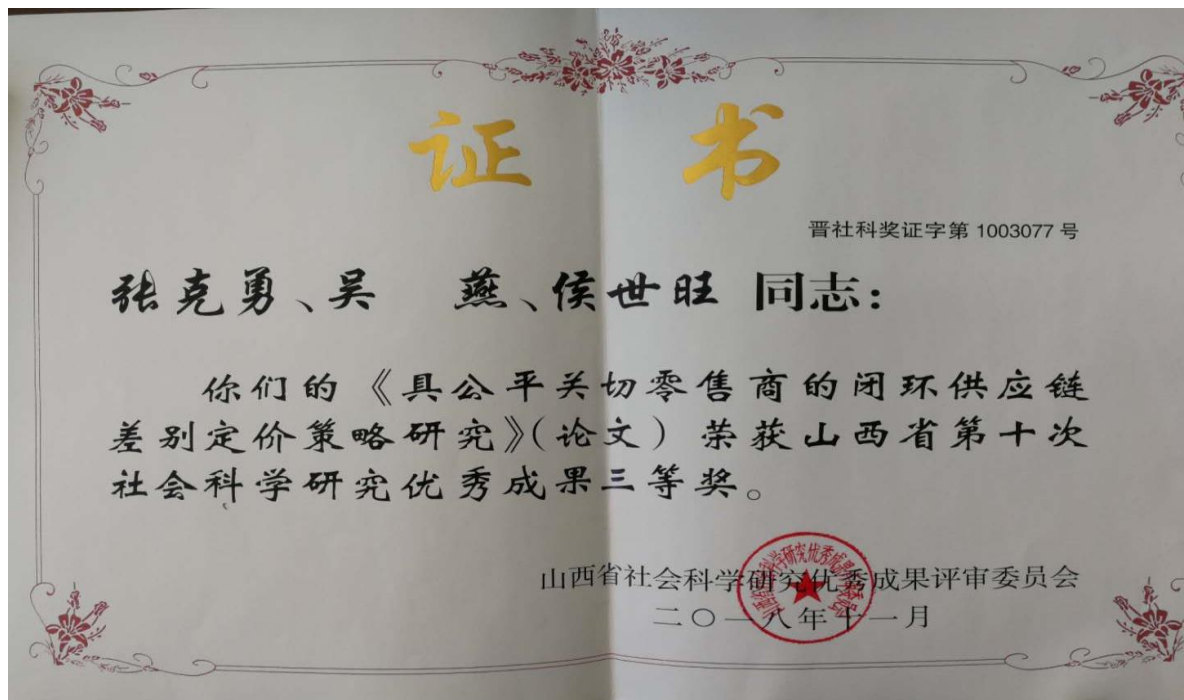 证 书
晋社科奖证字第 1003077 号
张克勇、吴 燕、侯世旺 同志：
你们的《具公平关切零售商的闭环供应链
差别定价策略研究》（论文）荣获山西省第十次
社会科学研究优秀成果三等奖。
山西省社会科学研究优秀成果评审委员会
二〇一八年十一月